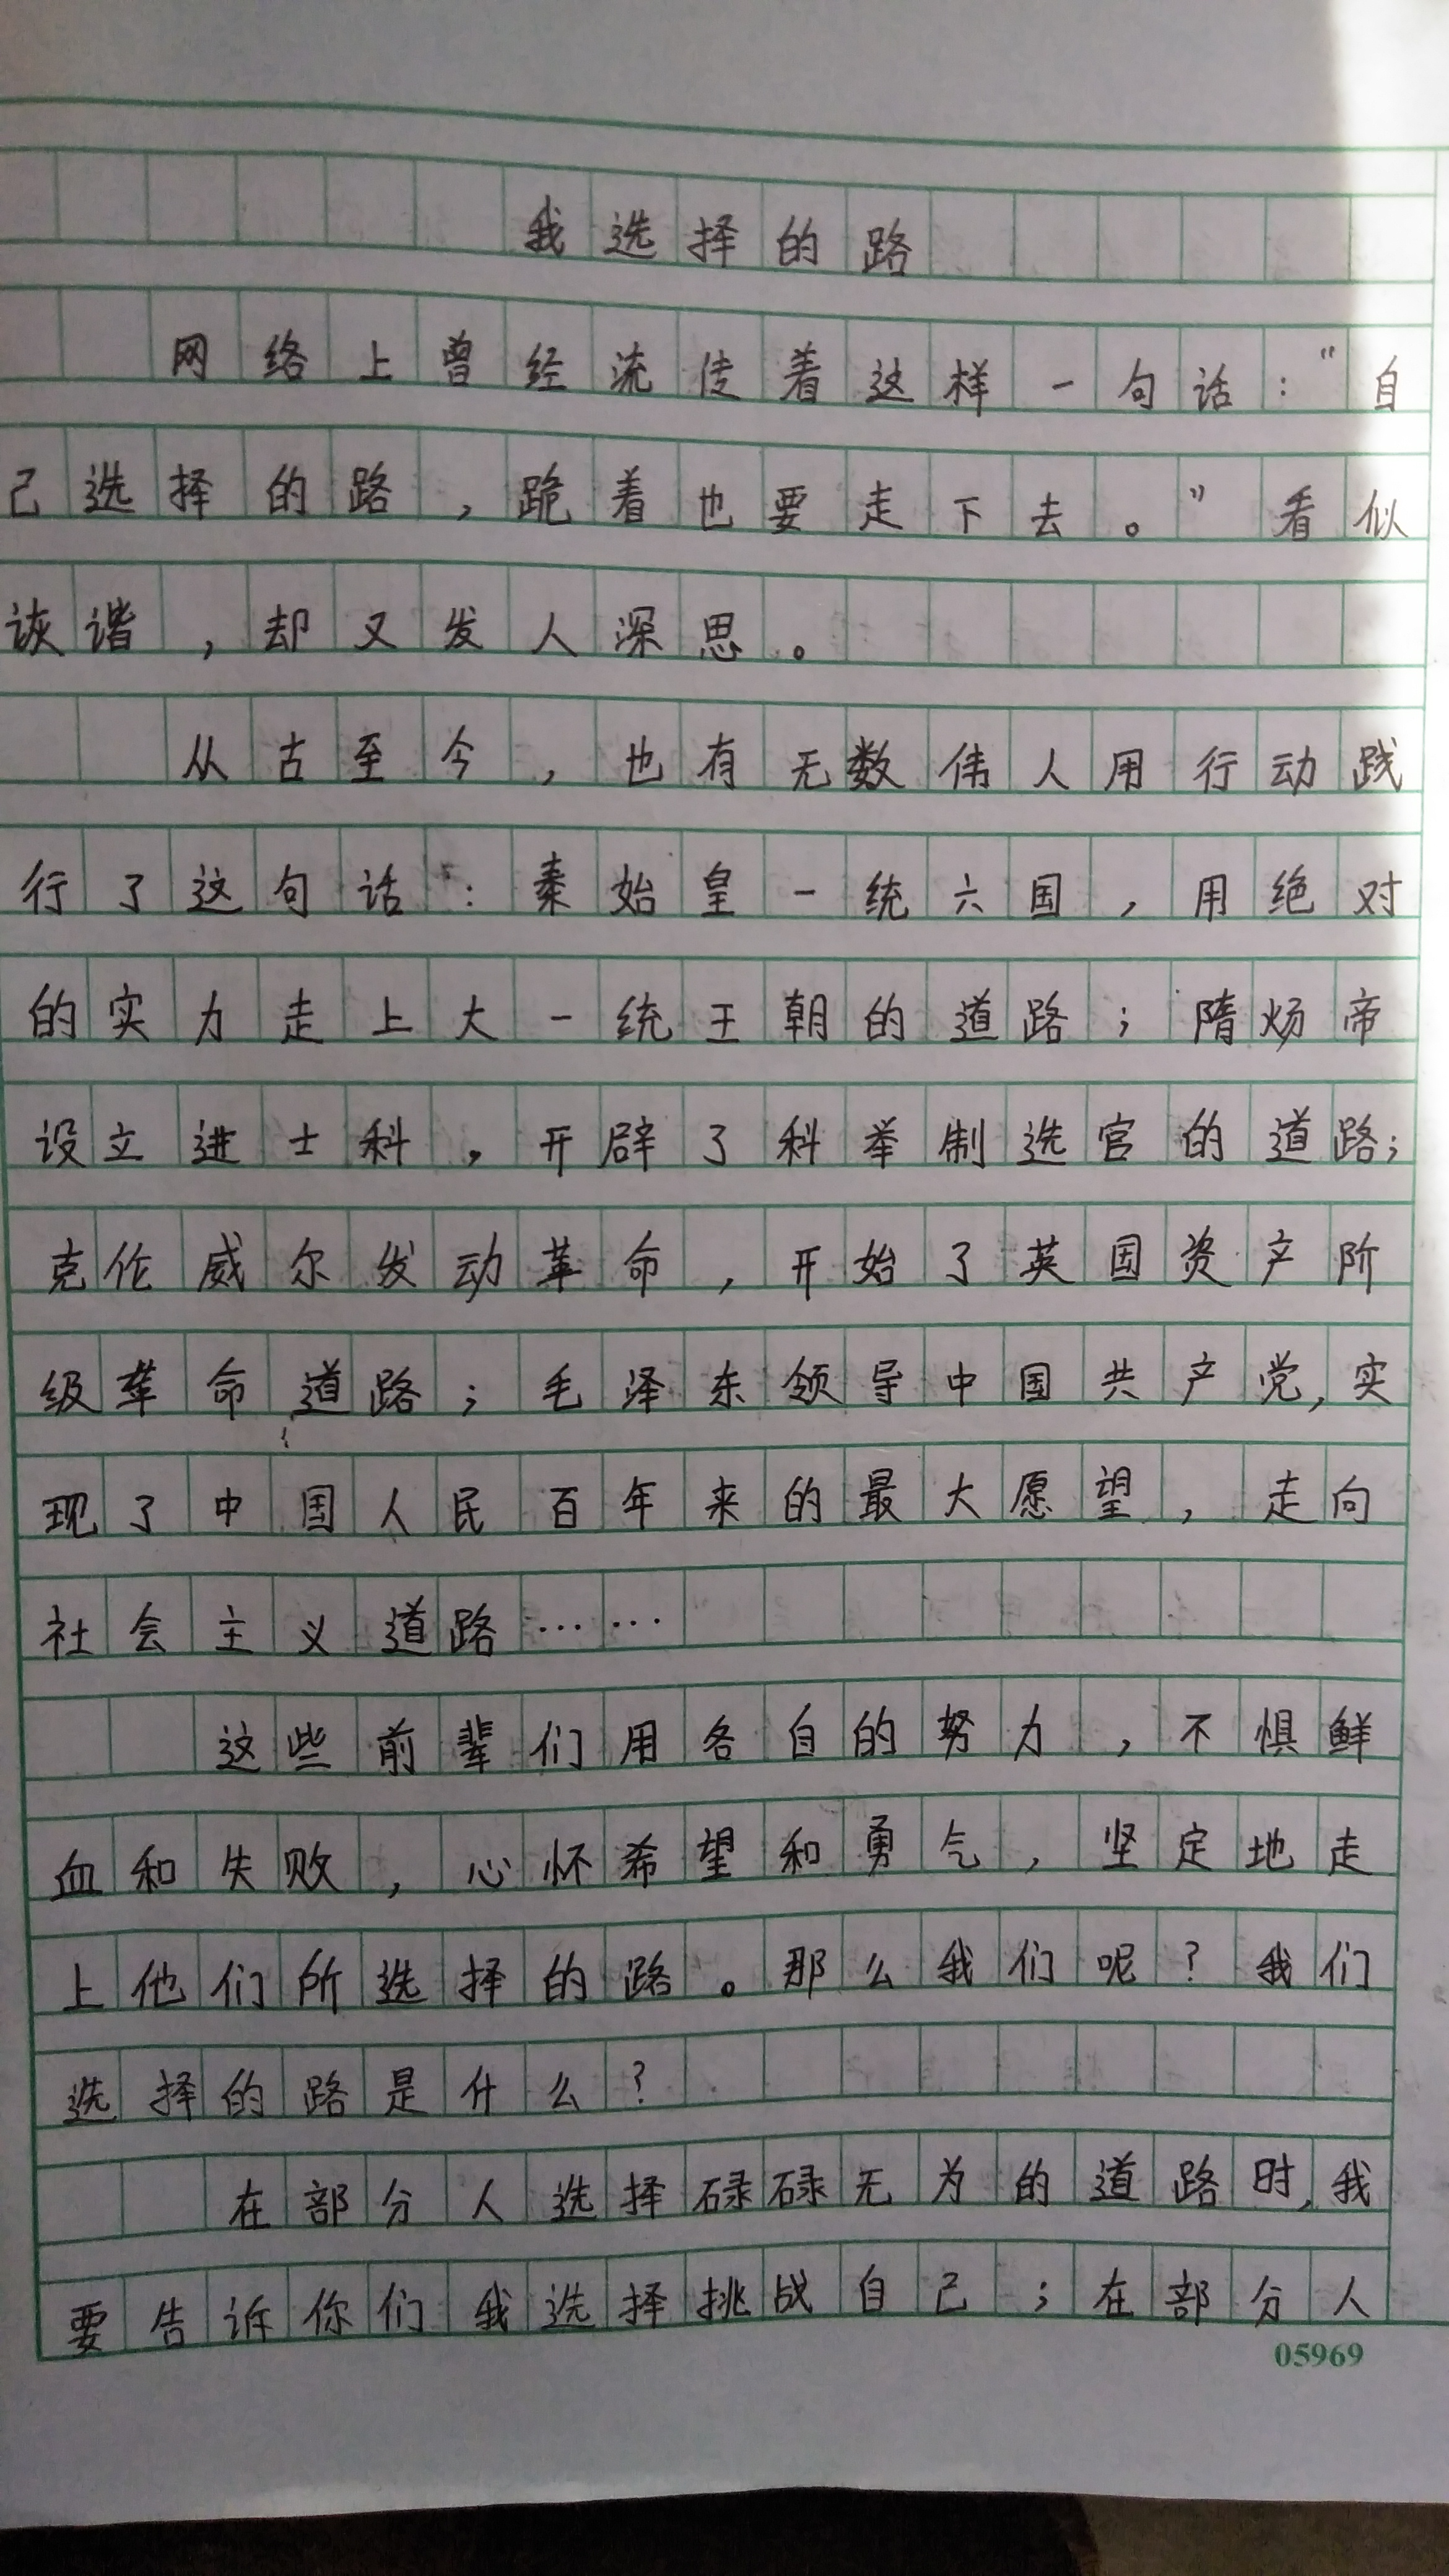 我选择的路
网络上曾经流传着这样一句话：“自
己选择的路，跪着也要走下去。”看似
诙谐，却又发人深思。
从古至今，也有无数伟人用行动践
行了这句话：秦始皇一统六国，用绝对
的实力走上大一统王朝的道路；隋炀帝
设立进士科，开辟了科举制选官的道路；
克伦威尔发动革命，开始了英国资产阶
级革命道路；毛泽东领导中国共产党，实
现了中国人民百年来的最大愿望，走向
社会主义道路……
这些前辈们用各自的努力，不惧鲜
血和失败，心怀希望和勇气，坚定地走
上他们所选择的路。那么我们呢？我们
选择的路是什么？
在部分人选择碌碌无为的道路时，我
要告诉你们我选择挑战自己；在部分人
05969